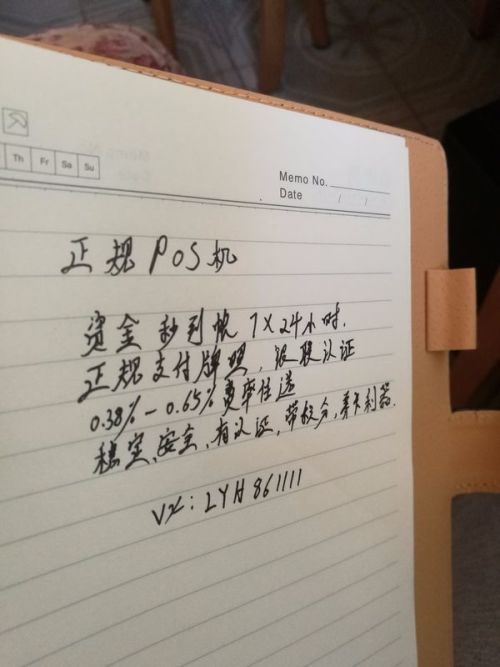 Th Fr Sa Su
Memo No.
Date / /
正规POS机
资金秒到帐 7X24小时.
正规支付牌照，银联认证
0.38%-0.65%费率任选
稳定,安全,有认证,带积分,养卡利器.
VX:LYH861111